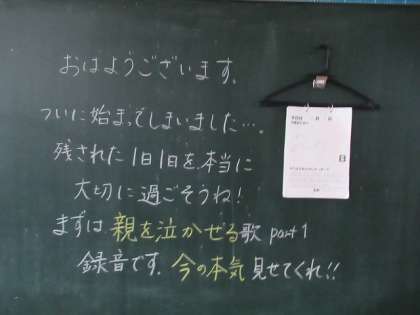 おはようございます。
ついに始まってしまいました…。
残された1日1日を、本当に
大切に過ごそうね!
まずは親を泣かせる歌 part 1
録音です。今の本気見せてくれ!!